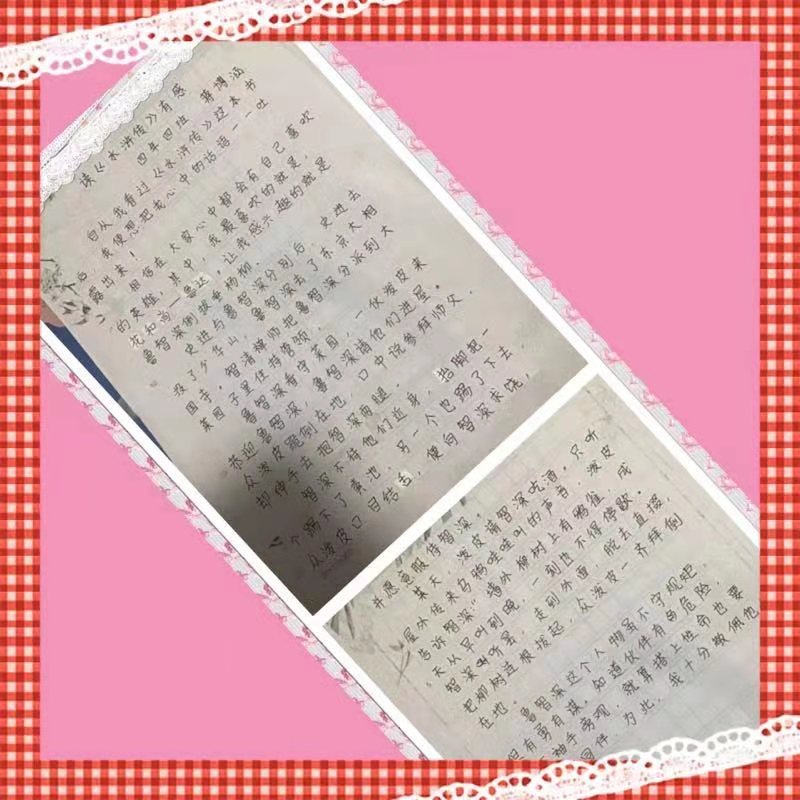 读《水浒传》有感
四年四班 涵
自从我看过《水浒传》这本书
后我便想把我心中的话语一一吐
露出来!相信在大家心中都会有自己喜欢
的英雄。其中,我最喜欢的就是,
花和尚一鲁达,让我感兴趣的就是
鲁智深倒拔垂杨柳。
史进与鲁智深分别后,史进去
投了少华山,鲁智深去了东京大相
国寺,智清禅师把鲁智深分派到大
菜园子里住持管领。
鲁智深看守菜园,一伙泼皮来
恭迎鲁智深,鲁智深请他们进屋。
众泼皮跪倒在地,口中说参拜师父,
却伸手去抱智深两腿。
智深不待他们近身,抬脚把一
个踢下了粪池,另一个也踢了下去
众泼皮口目结舌,便向智深求饶,
并愿意服侍智深。
某天,泼皮请智深吃酒。只听
屋外传来乌鸦哇哇叫的声音,泼皮
告诉智深:“墙外柳树上有鸦雀,成
天从早叫到晚,一刻也不得停歇。
智深听罢,走到外面,脱去直掇,
把柳树连根拔起,众泼皮一齐拜倒
在地。
鲁智深这个人物虽不守规矩,
但有勇有谋。知道伙伴有危险,
袖手旁观,就算搭上性命也要
同伴 为此,我十分敬佩他